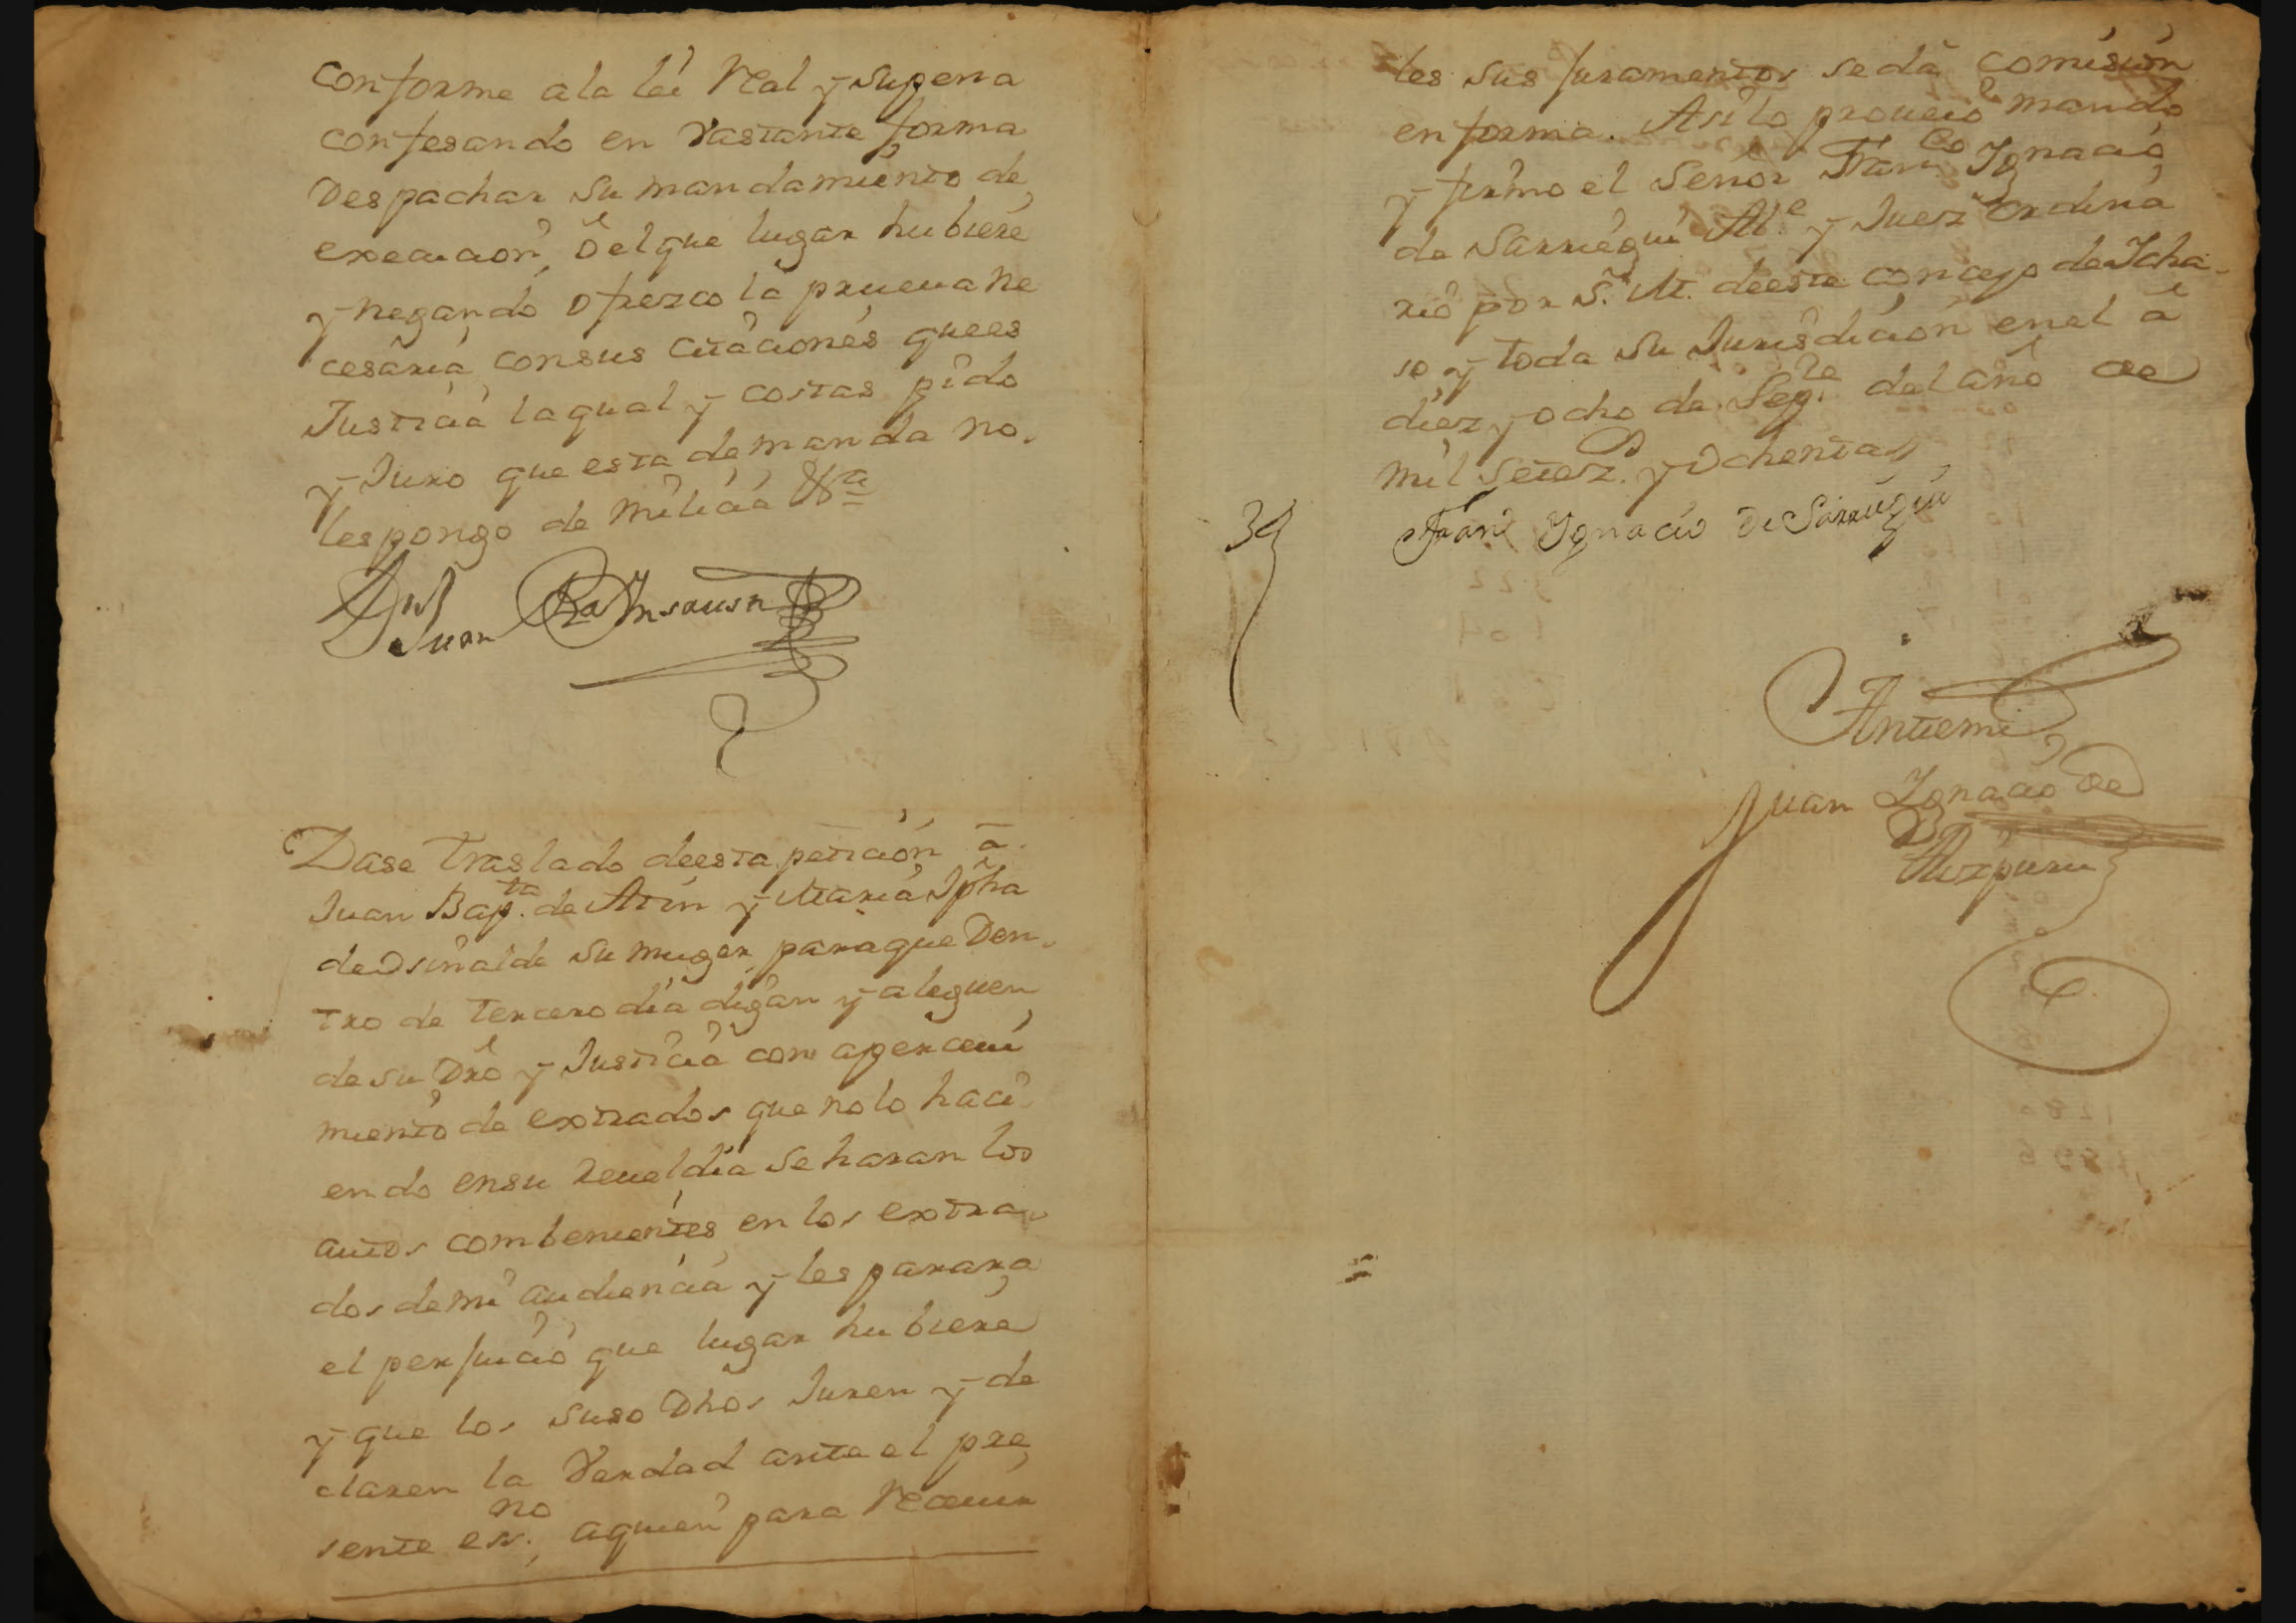 Conforme a la lei Real y su pena
confesando en vastante forma
Despachar su mandamiento de
execucion, ô el que lugar hubiere
y negando ofrezco la prueua ne
cesaria con sus citaciones que es
Justicia la qual y costas pido
y Juro que esta demanda no.
les pongo de milicia &ª
Juan
Dase traslado de esta peticion â
Juan Bap.ta de Arin y Maria Jpha
de Osinalde su muger para que Den.
tro de tercero dia digan y aleguen
de su Dro y Justicia con aperceui
miento de extrados que no lo haci
endo en su reueldia se haran los
autos combenientes en los extra.
dos de mi audiencia y les parara
el perjuicio que lugar hubiere
y que los suso Dhos Juren y de
claren la Verdad ante el pre
sente es.no, a quien para Receuir
les sus juramentos se dâ comision
en forma. Asi lo proueio mando
y firmo el señor Fran.co Ygnacio
de Sarriegui Al.e y Juez ordina
rio por S. M. de este concejo de Ycha
so y toda su Jurisdicion en el â
diez y ocho de Sep.re del año de
mil setez.s y ochenta
34
Fran.co Ygnacio De Sarriegui
Antemi
Juan Ygnacio de
Aizpuru